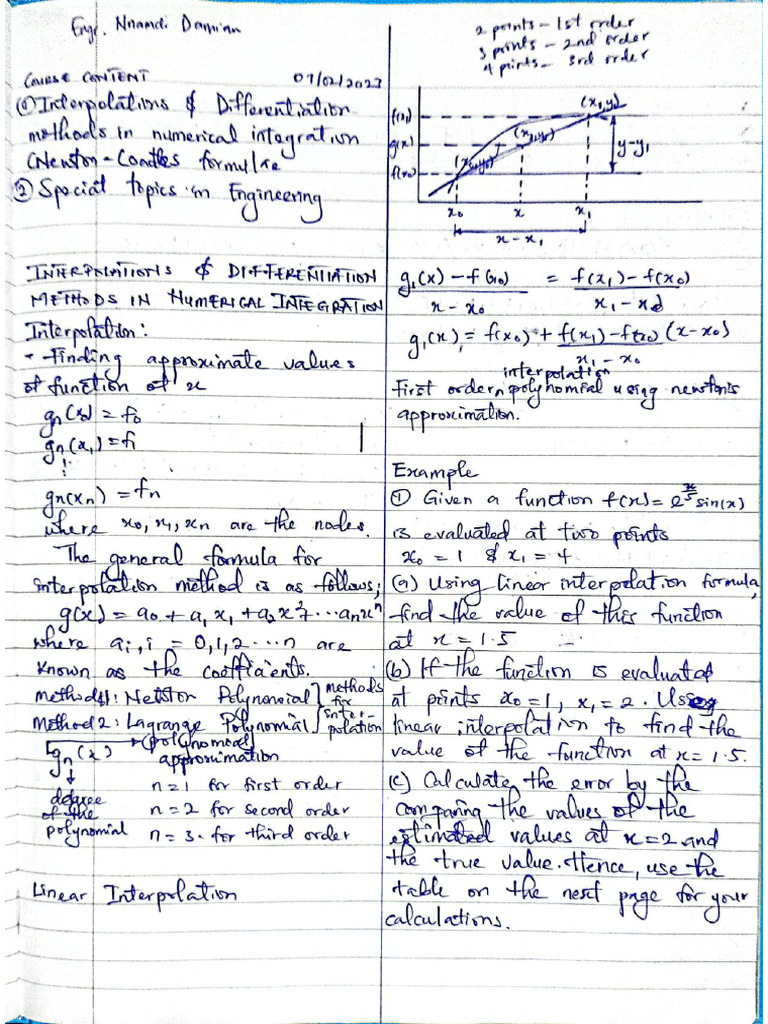 Engr. Nnamdi Damian
COURSE CONTENT 07/02/2023
① Interpolations & Differentiation
methods in numerical integration
(Newton-Coates formulae
② Special topics in Engineering
INTERPOLATIONS & DIFFERENTIATION
METHODS IN NUMERICAL INTEGRATION
Interpolation:
- Finding approximate values
of function of x
gn(x0) = f0
gn(x1) = f1
⋮
gn(xn) = fn
where x0, x1, xn are the nodes.
The general formula for
interpolation method is as follows;
g(x) = a0 + a1x1 + a2x² + ... anxⁿ
where ai, i = 0,1,2 ... n are
known as the coefficients.
Method 1: Newton Polynomial } methods
Method 2: Lagrange Polynomial } for inter-
polation
gn(x) → (polynomial
approximation
↓
degree
of the
polynomial
n=1 for first order
n=2 for second order
n=3. for third order
Linear Interpolation
2 points - 1st order
3 points - 2nd order
4 points - 3rd order
f(x1)
g(x)
f(x0)
(x1,y)
y-y1
x0 x x1
x - x1
g1(x) - f(x0) = f(x1) - f(x0)
x - x0 x1 - x0
g1(x) = f(x0) + f(x1) - f(x0) (x-x0)
x1 - x0
interpolation
First order polynomial using newton's
approximation.
Example
① Given a function f(x) = e^x/5 sin(x)
is evaluated at two points
x0 = 1 & x1 = 4
(a) Using linear interpolation formula,
find the value of this function
at x = 1.5
(b) If the function is evaluated
at points x0=1, x1=2. Using
linear interpolation to find the
value of the function at x=1.5.
(c) Calculate the error by the
comparing the values of the
estimated values at x=2 and
the true value. Hence, use the
table on the next page for your
calculations.